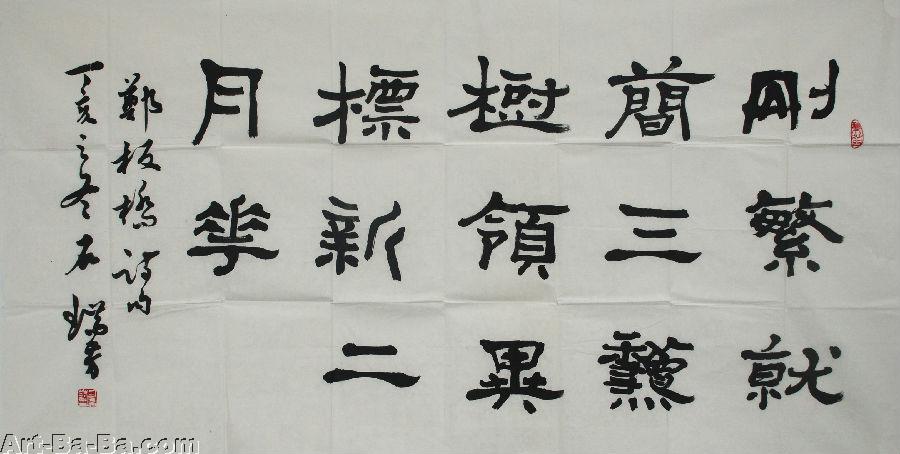 刪繁就
簡三龝
樹領異
標新二
月華
鄭板橋詩句
丁亥之冬石瑞芳
Art-Ba-Ba.com